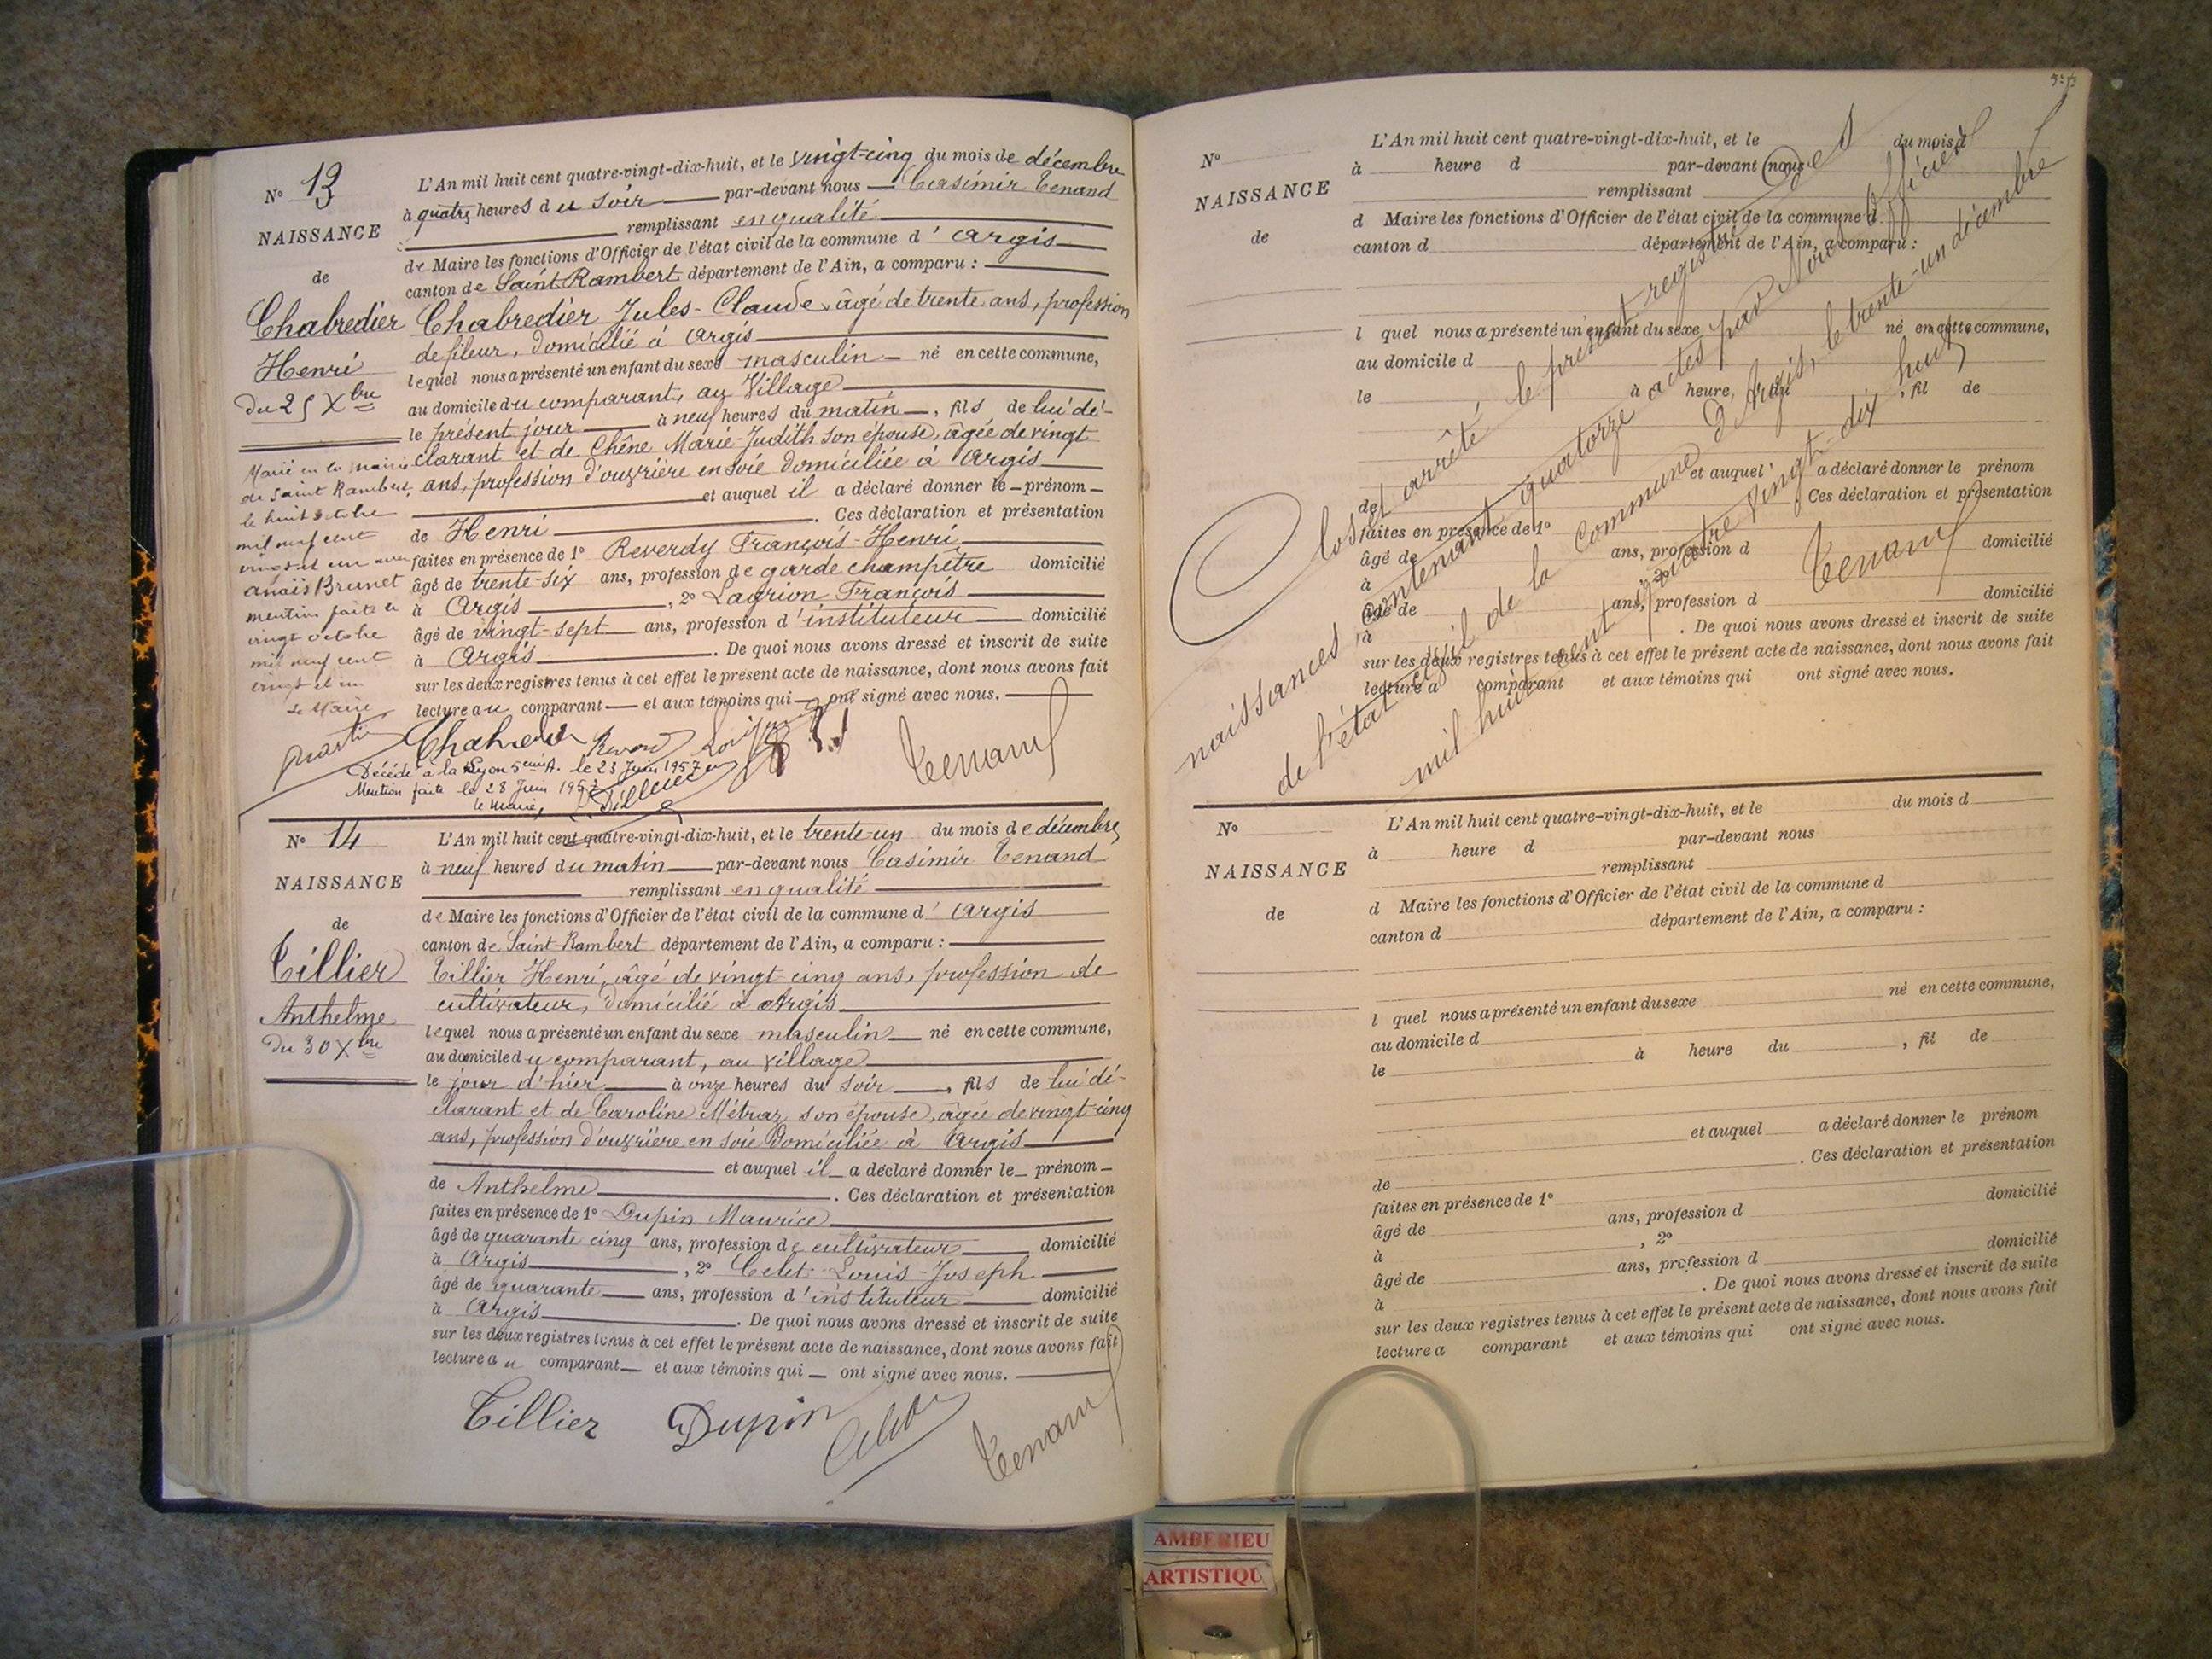 N° 13
NAISSANCE
de
Chabredier
Henri
du 25 Xbre
Marié en la mairie
de Saint Rambert,
le huit octobre
mil neuf cent
vingt et un avec
Anaïs Brunet
mention faite le
vingt octobre
mil neuf cent
vingt et un
Le Maire,
L'An mil huit cent quatre-vingt-dix-huit, et le vingt-cinq du mois de décembre
à quatre heures du soir par-devant nous Casimir Tenand
remplissant en qualité
de Maire les fonctions d'Officier de l'état civil de la commune d'Argis
canton de Saint Rambert département de l'Ain, a comparu :
Chabredier Jules-Claude âgé de trente ans, profession
de fileur, domicilié à Argis
lequel nous a présenté un enfant du sexe masculin né en cette commune,
au domicile du comparant, au Village
le présent jour à neuf heures du matin, fils de lui dé-
clarant et de Chêne Marie-Judith son épouse, âgée de vingt
ans, profession d'ouvrière en soie domiciliée à Argis
et auquel il a déclaré donner le prénom
de Henri. Ces déclaration et présentation
faites en présence de 1° Reverdy François-Henri
âgé de trente-six ans, profession de garde champêtre domicilié
à Argis, 2° Lagrion François
âgé de vingt-sept ans, profession d'instituteur domicilié
à Argis. De quoi nous avons dressé et inscrit de suite
sur les deux registres tenus à cet effet le présent acte de naissance, dont nous avons fait
lecture au comparant et aux témoins qui ont signé avec nous.
Tenand
Décédé à Lyon 5ème A. le 23 Juin 1957
Mention faite le 28 Juin 1957
le Maire,
N° 14
NAISSANCE
de
Tillier
Anthelme
du 30 Xbre
L'An mil huit cent quatre-vingt-dix-huit, et le trente-un du mois de décembre,
à neuf heures du matin par-devant nous Casimir Tenand
remplissant en qualité
de Maire les fonctions d'Officier de l'état civil de la commune d'Argis
canton de Saint Rambert département de l'Ain, a comparu :
Tillier Henri, âgé de vingt cinq ans, profession de
cultivateur, domicilié à Argis
lequel nous a présenté un enfant du sexe masculin né en cette commune,
au domicile du comparant, au village
le jour d'hier à onze heures du soir, fils de lui dé-
clarant et de Caroline Métraz son épouse, âgée de vingt-cinq
ans, profession d'ouvrière en soie domiciliée à Argis
et auquel il a déclaré donner le prénom
de Anthelme. Ces déclaration et présentation
faites en présence de 1° Dupin Maurice
âgé de quarante cinq ans, profession de cultivateur domicilié
à Argis, 2° Louis-Joseph
âgé de quarante ans, profession d'instituteur domicilié
à Argis. De quoi nous avons dressé et inscrit de suite
sur les deux registres tenus à cet effet le présent acte de naissance, dont nous avons fait
lecture au comparant et aux témoins qui ont signé avec nous.
Tillier Dupin Tenand
N°
NAISSANCE
de
L'An mil huit cent quatre-vingt-dix-huit, et le du mois d
à heure d par-devant nous
remplissant
d Maire les fonctions d'Officier de l'état civil de la commune d
canton d département de l'Ain, a comparu :
l quel nous a présenté un enfant du sexe né en cette commune,
au domicile d
le à heure du , fil de
et auquel a déclaré donner le prénom
de . Ces déclaration et présentation
faites en présence de 1°
âgé de ans, profession d domicilié
à , 2°
âgé de ans, profession d domicilié
à . De quoi nous avons dressé et inscrit de suite
sur les deux registres tenus à cet effet le présent acte de naissance, dont nous avons fait
lecture a comparant et aux témoins qui ont signé avec nous.
Clos et arrêté le présent registre des
naissances contenant quatorze actes par Nous Officier
de l'état civil de la commune d'Argis, le trente-un décembre
mil huit cent quatre vingt-dix huit
Tenand
N°
NAISSANCE
de
L'An mil huit cent quatre-vingt-dix-huit, et le du mois d
à heure d par-devant nous
remplissant
d Maire les fonctions d'Officier de l'état civil de la commune d
canton d département de l'Ain, a comparu :
l quel nous a présenté un enfant du sexe né en cette commune,
au domicile d
le à heure du , fil de
et auquel a déclaré donner le prénom
de . Ces déclaration et présentation
faites en présence de 1°
âgé de ans, profession d domicilié
à , 2°
âgé de ans, profession d domicilié
à . De quoi nous avons dressé et inscrit de suite
sur les deux registres tenus à cet effet le présent acte de naissance, dont nous avons fait
lecture a comparant et aux témoins qui ont signé avec nous.
AMBERIEU
ARTISTIQU